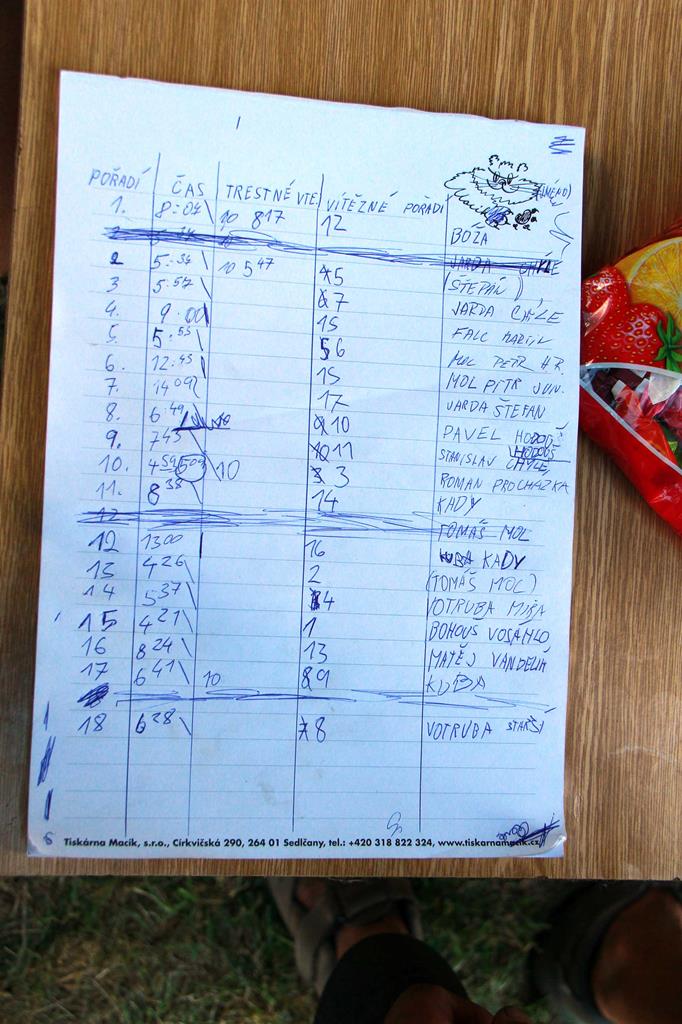 POŘADÍ ČAS TRESTNÉ VTE. VÍTĚZNÉ POŘADÍ
1. 8:07 10 817 12 BOŽA
2 5:37 10 5 47 5 (ŠTEPÁN)
3 5:57 7 JARDA CHÝLE
4. 9:00 15 FALC MARTIN
5. 5:55 6 MOL PETR
6. 12:45 15 MOL PETR JUN.
7. 14 09 17 JARDA ŠTEFAN
8. 6 49 10 10 PAVEL
9. 7 45 11 STANISLAV CHÝLE
10. 4 59 5 09 10 3 ROMAN PROCHÁZKA
11. 8 38 14 KADY
TOMÁŠ MOL
12 13 00 16 KADY
13 4 26 2 (TOMÁŠ MOL)
14 5 37 4 VOTRUBA MÍŠA
15 4 21 1 BOHOUŠ
16 8 24 13 MATĚJ
17 6 41 10 9 KUBA
18 6 28 8 VOTRUBA STARŠÍ
Tiskárna Macík, s.r.o., Církvičská 290, 264 01 Sedlčany, tel.: +420 318 822 324, www.tiskarnamacik.cz